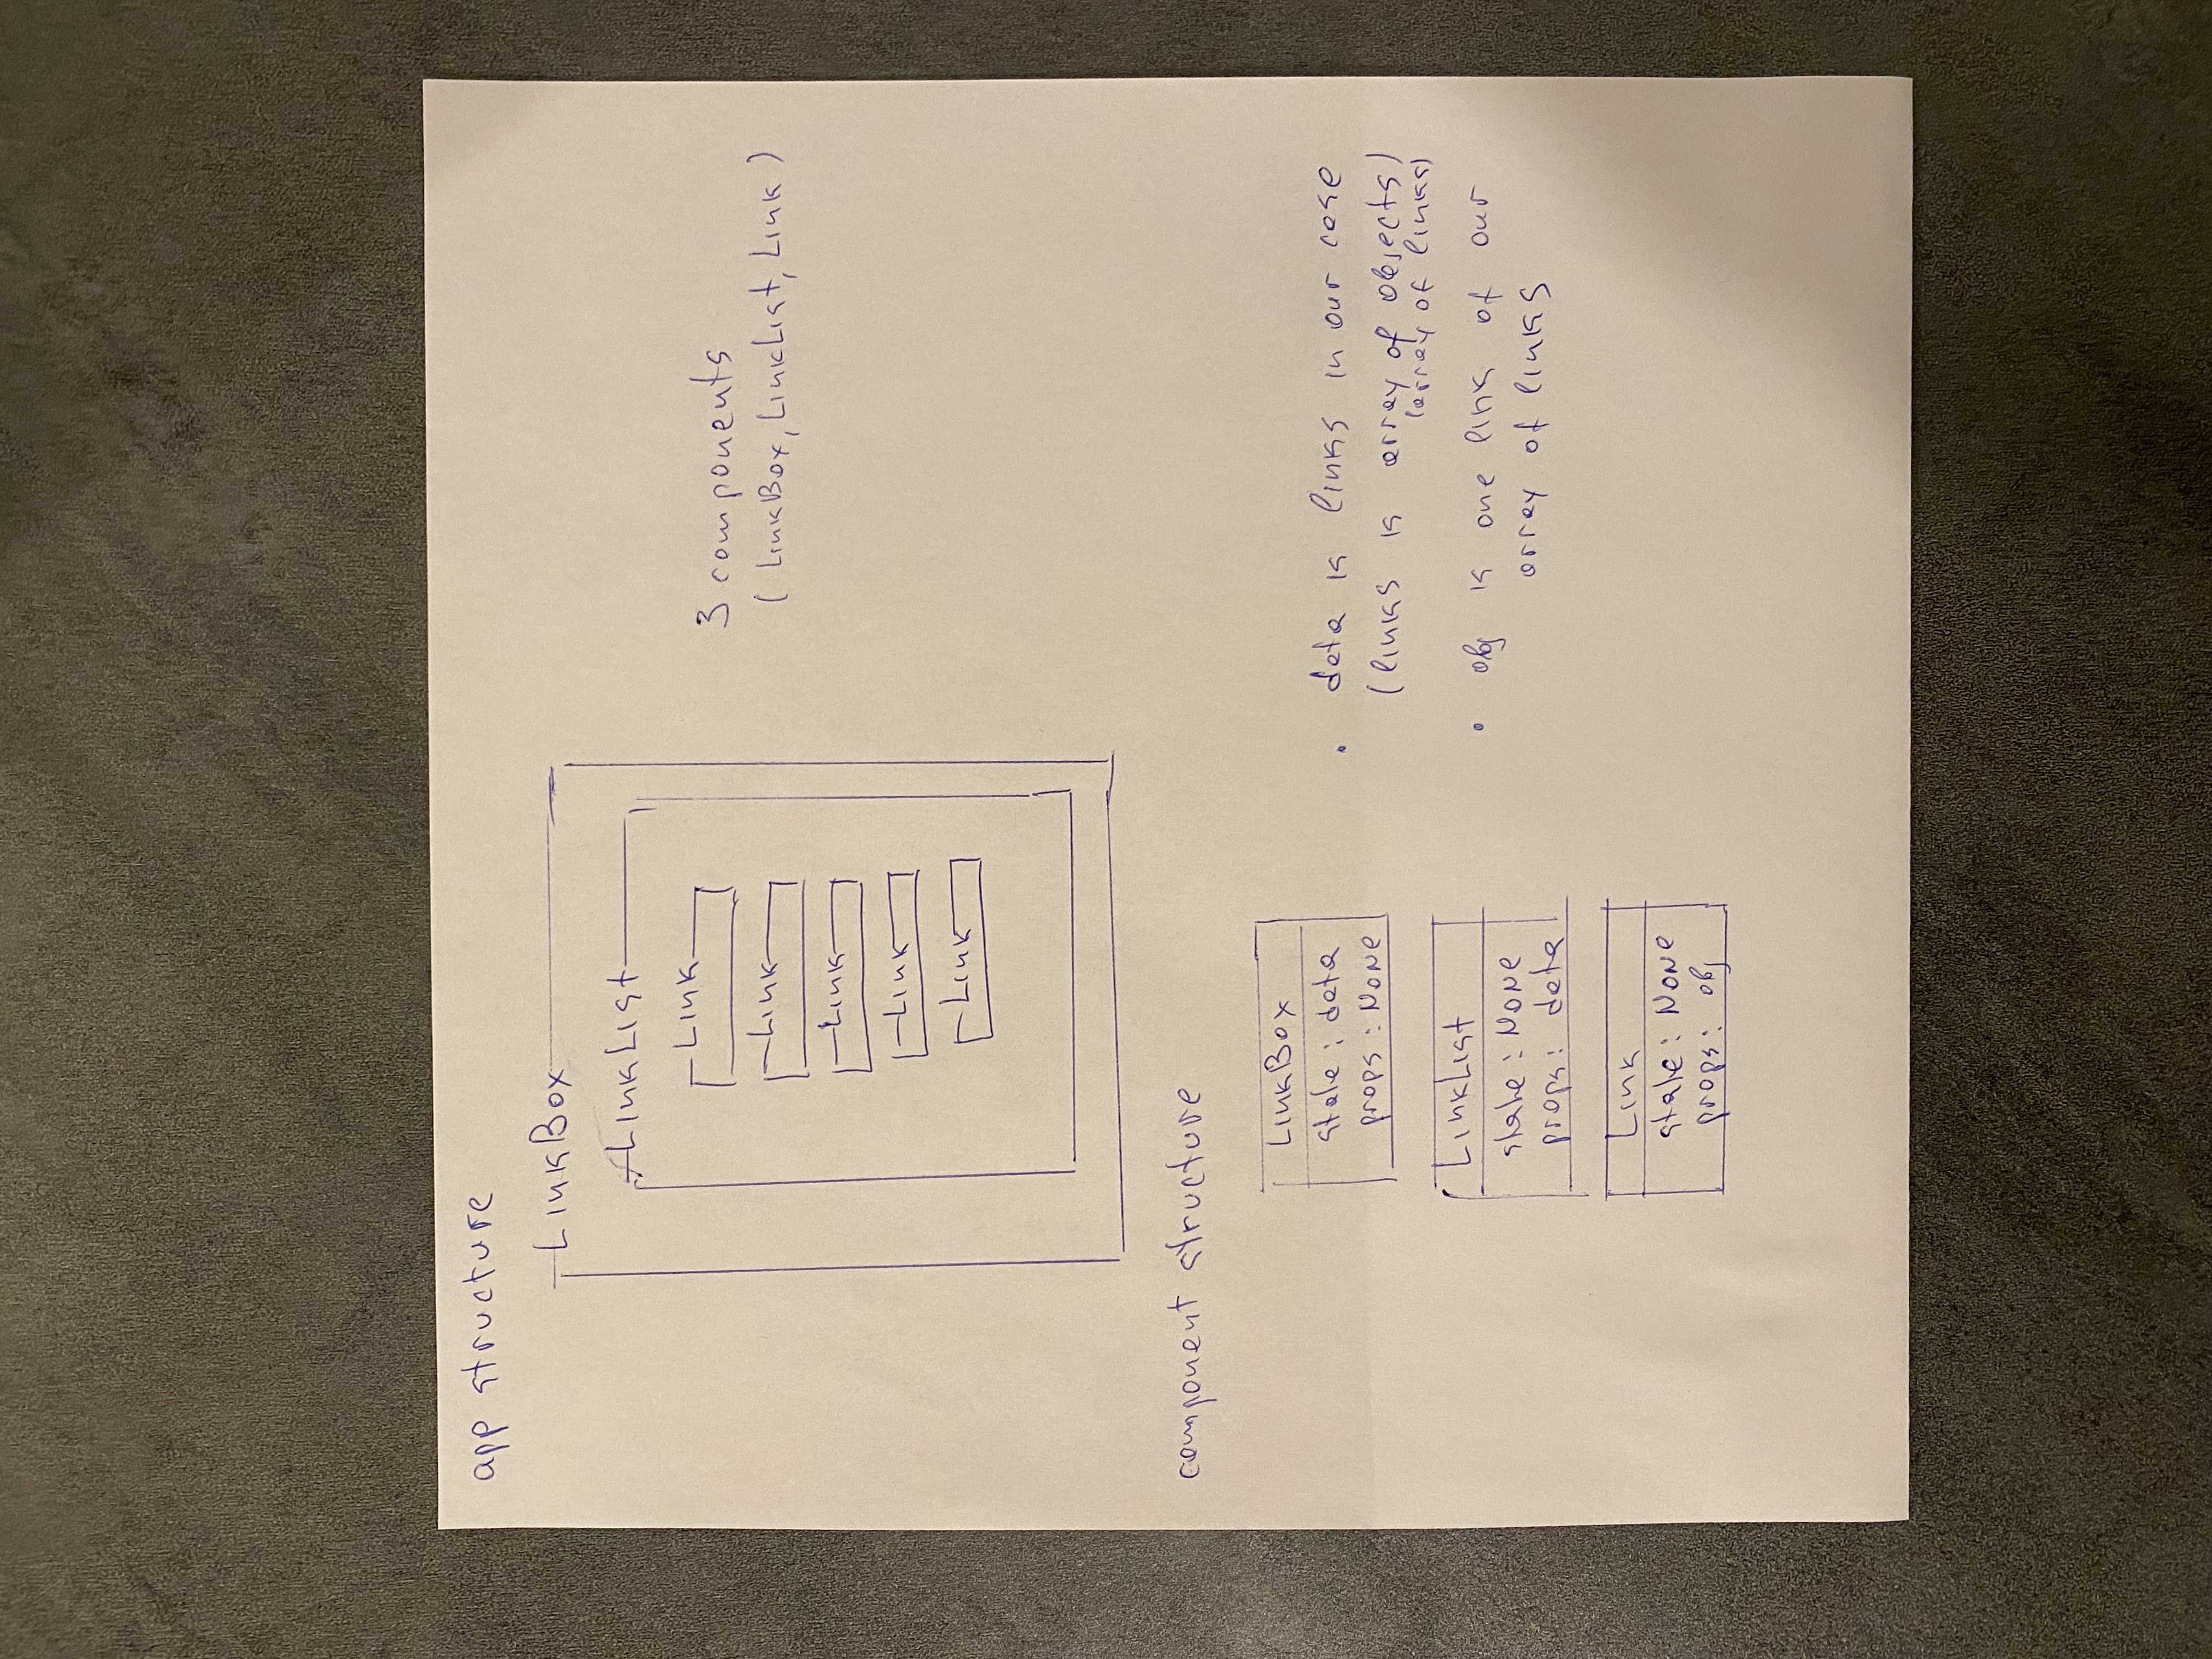 app structure
LinkBox
LinkList
Link
Link
Link
Link
Link
3 components
(LinkBox, LinkList, Link)
component structure
LinkBox
state: data
props: None
LinkList
state: None
props: data
Link
state: None
props: obj
• data is links in our case
(links is array of objects)
(array of links)
• obj is one link of our
array of links